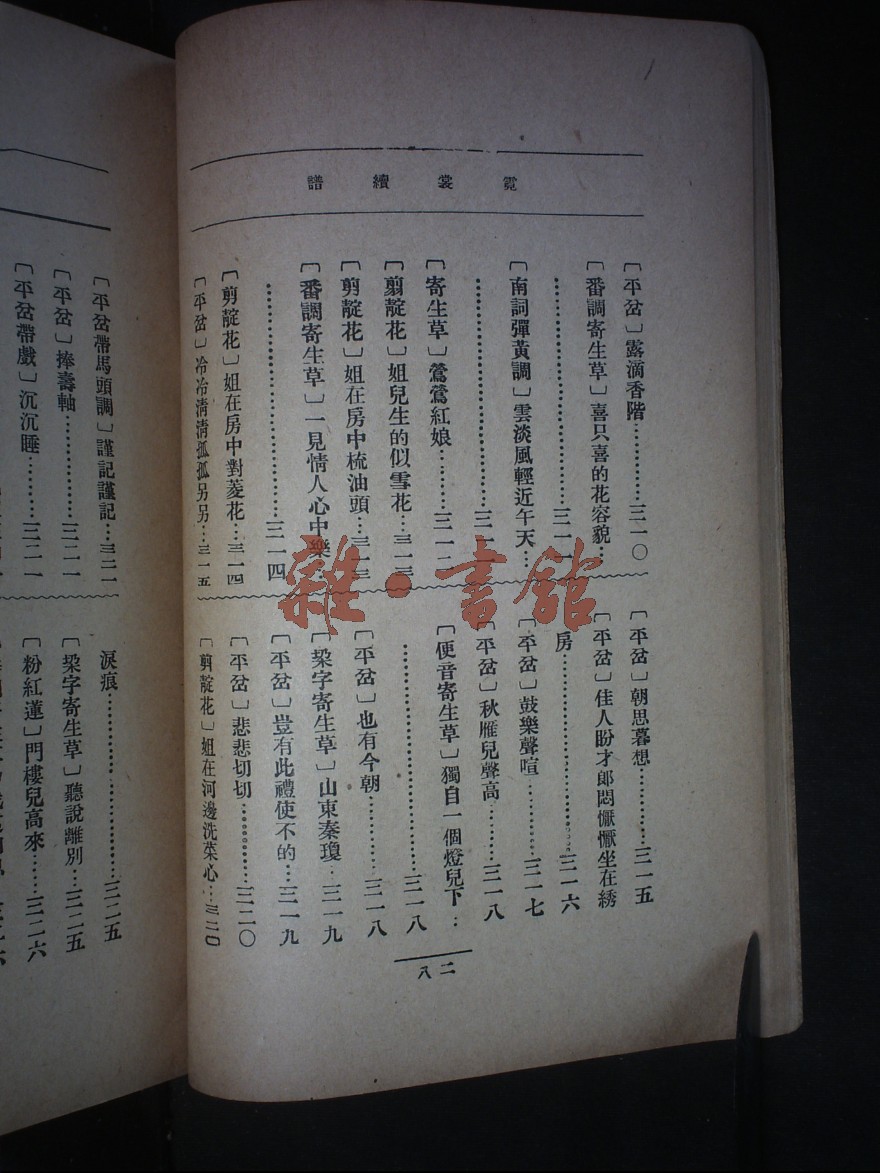 霓裳續譜
〔平岔〕露滴香階…………三一〇
〔番調寄生草〕喜只喜的花容貌…
……………………三一一
〔南詞彈黃調〕雲淡風輕近午天…
……………………三一
〔寄生草〕鶯鶯紅娘…………三一二
〔剪靛花〕姐兒生的似雪花…三一三
〔剪靛花〕姐在房中梳油頭…三一三
〔番調寄生草〕一見情人心中樂…
……………………三一四
〔剪靛花〕姐在房中對菱花…三一四
〔平岔〕冷冷清清孤孤另另…三一五
〔平岔〕朝思暮想…………三一五
〔平岔〕佳人盼才郎悶懨懨坐在綉
房……………………三一六
〔平岔〕鼓樂聲喧…………三一七
〔平岔〕秋雁兒聲高………三一八
〔便音寄生草〕獨自一個燈兒下…
……………………三一八
〔平岔〕也有今朝…………三一八
〔垛字寄生草〕山東秦瓊…三一九
〔平岔〕豈有此禮使不的…三一九
〔平岔〕悲悲切切…………三二〇
〔剪靛花〕姐在河邊洗菜心…三二〇
二八
〔平岔帶馬頭調〕謹記謹記…三二一
〔平岔〕捧壽軸…………三二一
〔平岔帶戲〕沉沉睡………三二一
淚痕……………………三二五
〔垛字寄生草〕聽說離別…三二五
〔粉紅蓮〕門樓兒高來……三二六
雜·書館